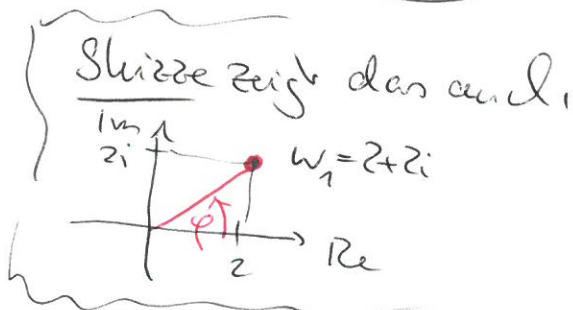 Skizze zeigt das auch.
Im
2i
w₁=2+2i
φ
2
Re